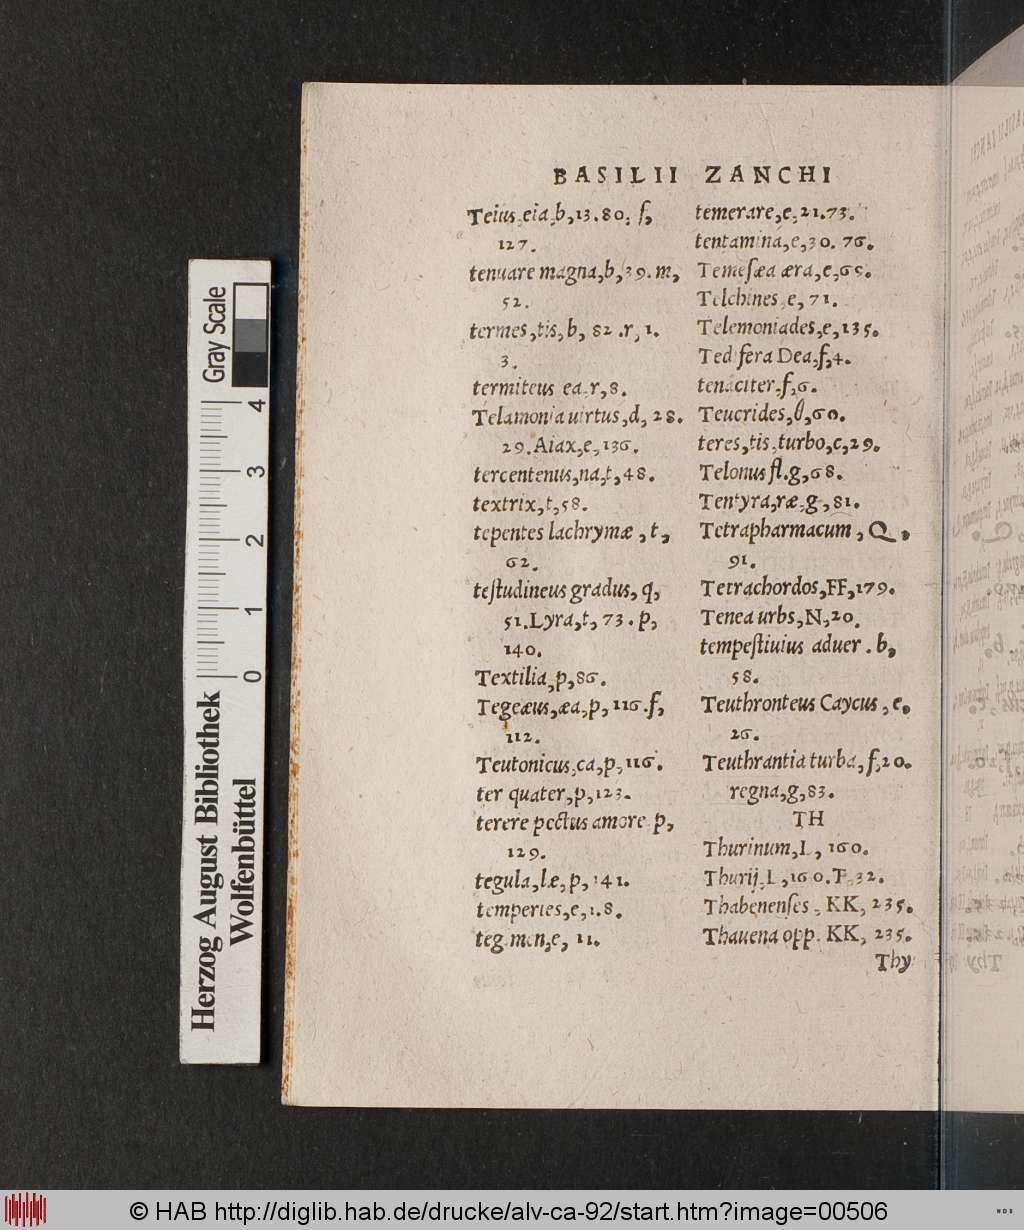 BASILII ZANCHI
Teius, eia, b, 13. 80. f,
127.
tenuare magna, b, 39. m,
52.
termes, tis, b, 82. r, 1.
3.
termiteus ea, r, 8.
Telamonia uirtus, d, 28.
29. Aiax, e, 136.
tercentenus, na, t, 48.
textrix, t, 58.
tepentes lachrymæ, t,
62.
teſtudineus gradus, q,
51. Lyra, t, 73. p,
140.
Textilia, p, 86.
Tegeæus, æa, p, 116. f,
112.
Teutonicus, ca, p, 116.
ter quater, p, 123.
terere pectus amore p,
129.
tegula, læ, p, 141.
temperies, e, 1. 8.
teg men, e, 11.
temerare, e, 21. 73.
tentamina, e, 30. 76.
Temeſæa æra, e,
Telchines, e, 71.
Telemoniades, e, 135.
Tedifera Dea, f, 4.
tenaciter, f, 6.
Teucrides, 60.
teres, tis, turbo, c, 29.
Telonus fl. g, 68.
Tentyra, ræ, g, 81.
Tetrapharmacum, Q,
91.
Tetrachordos, FF, 179.
Tenea urbs, N, 20.
tempeſtiuius aduer. b,
58.
Teuthronteus Caycus, e,
26.
Teuthrantia turba, f, 20.
regna, g, 83.
TH
Thurinum, L, 160.
Thurij, L, 160. T, 32.
Thabenenſes, KK, 235.
Thauena opp. KK, 235.
Thy
Gray Scale
4
3
2
1
0
Herzog August Bibliothek
Wolfenbüttel
© HAB http://diglib.hab.de/drucke/alv-ca-92/start.htm?image=00506
WDB